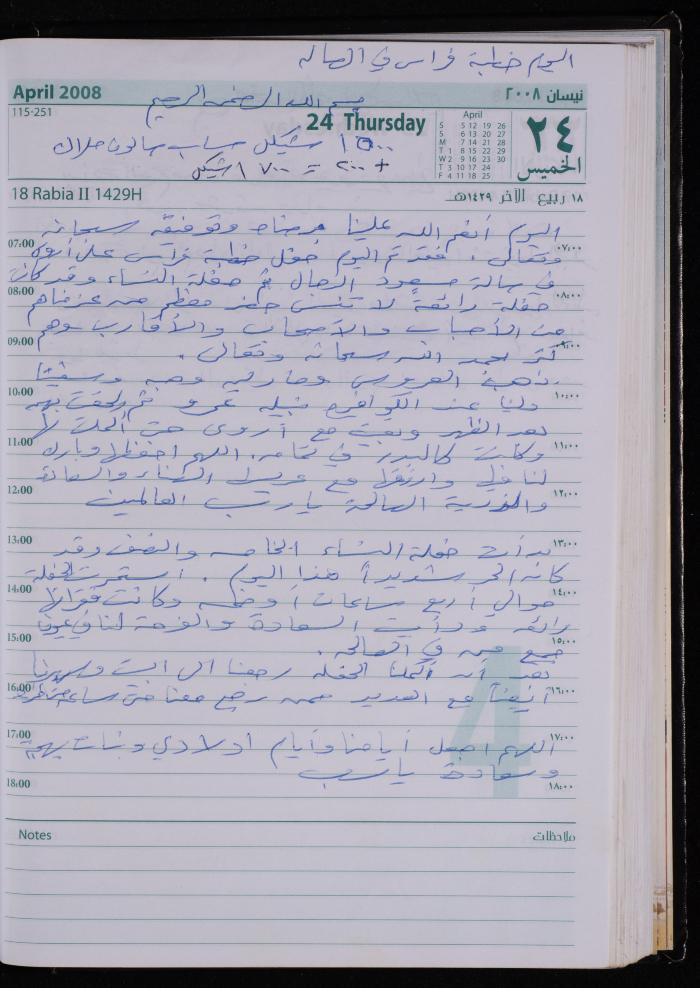 اليوم خطبة فراس في الصاله
April 2008
نيسان ٢٠٠٨
بسم الله الرحمن الرحيم
115-251
24 Thursday
April
S 5 12 19 26
S 6 13 20 27
M 7 14 21 28
T 1 8 15 22 29
W 2 9 16 23 30
T 3 10 17 24
F 4 11 18 25
٢٤
الخميس
١٥٠٠ شيكل حساب صالون
+ ٢٠٠ = ١٧٠٠ شيكل
18 Rabia II 1429H
١٨ ربيع الآخر ١٤٢٩هـ
اليوم أنعم الله علينا وتوفيقه سبحانه
07:00 وتعالى. فقد تم اليوم حفل خطبة فراس على أروى ٠٧:٠٠
في صالة مسعود الرجال ثم حفلة النساء وقد كانت
08:00 حفلة رائعة لا تنسى حضر معظم من عزمناهم ٠٨:٠٠
من الأحباب والأصحاب والأقارب وهم
09:00 كثر بحمد الله سبحانه وتعالى. ٠٩:٠٠
ذهبت العروس
10:00 عند الكوافيره نبيله عمرو ثم لحقت بهم ١٠:٠٠
بعد الظهر وبقيت مع أروى حتى
11:00 وكانت كالبدر في تمامه. اللهم احفظها وبارك ١١:٠٠
لنا فيها وارزقها مع عريسها الهناء والسعادة
12:00 والذرية الصالحة يا رب العالمين ١٢:٠٠
13:00 بدأت حفلة النساء الخامسه والنصف وقد ١٣:٠٠
كان الحر شديداً هذا اليوم. استمرت الحفلة
14:00 حوالي أربع ساعات أو خمسه وكانت فعلاً ١٤:٠٠
رائعه ورأيت السعادة والفرحة لنا في عيون
15:00 جميع من في الصاله. ١٥:٠٠
بعد أن أكملنا الحفله رجعنا الى البيت وسهرنا
16:00 أيضاً مع العديد ممن رجع معنا حتى ساعة متأخرة ١٦:٠٠
17:00 اللهم اجعل أيامنا وأيام اولادي وبناتي بهجة ١٧:٠٠
وسعادة يا رب
18:00 ١٨:٠٠
4
Notes
ملاحظات